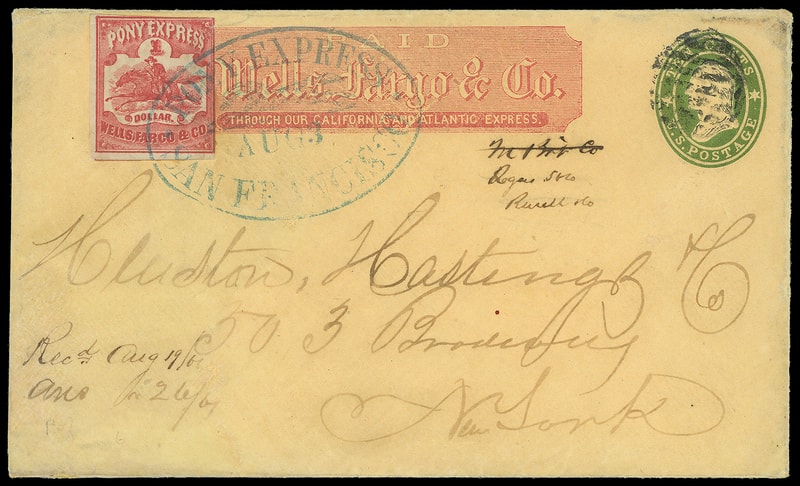 PONY EXPRESS
1
DOLLAR.
WELLS, FARGO & CO.
PAID
Wells, Fargo & Co.
THROUGH OUR CALIFORNIA AND ATLANTIC EXPRESS.
PONY EXPRESS
AUG 3
SAN FRANCISCO
TEN CENTS
U.S. POSTAGE
Co
Rogers
Russell
Heuston, Hastings & Co
503 Broadway
New York
Recd Aug 19/61
Ans 26/61